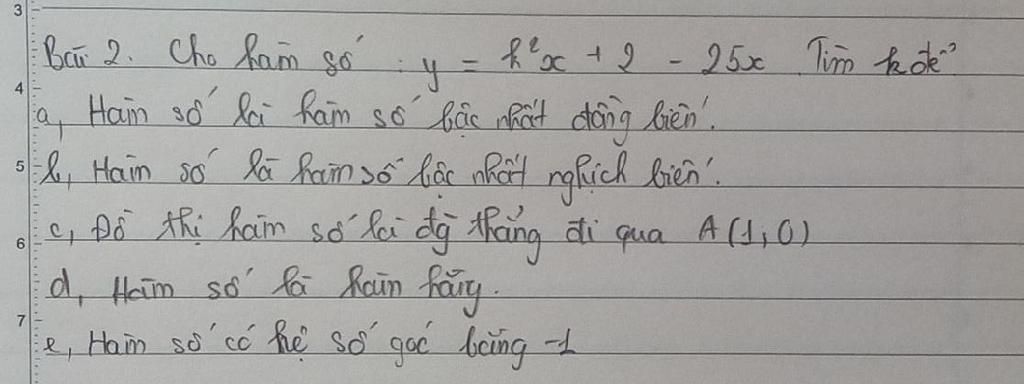 3
Bài 2. Cho hàm số : y = k²x + 2 - 25x. Tìm k để
4
a, Hàm số là hàm số bậc nhất đồng biến.
5
b, Hàm số là hàm số bậc nhất nghịch biến.
6
c, Đồ thị hàm số là đg thẳng đi qua A(1;0)
d, Hàm số là hàm hằng.
7
e, Hàm số có hệ số góc bằng -1